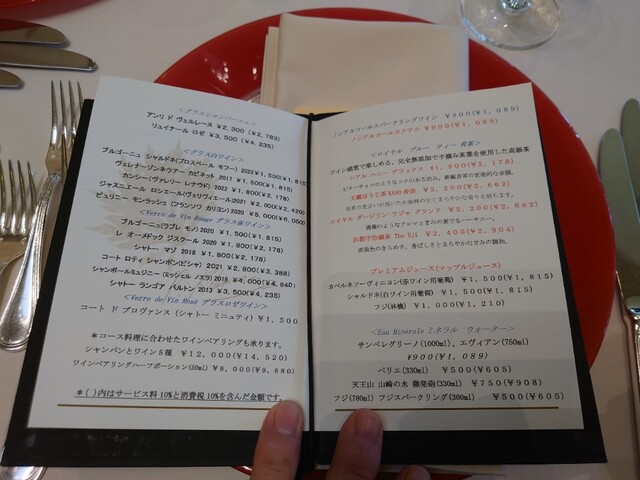 <グラスシャンパーニュ>
アンリ ド ヴェルレーヌ ¥2,300 (¥2,783)
リュイナール ロゼ ¥3,500 (¥4,235)
<グラス白ワイン>
ブルゴーニュ シャルドネ(プロスペール モフー) 2022 ¥1,500(¥1,815)
ヴェレナーゾンネウアー カビネット 2017 ¥1,500(¥1,815)
カンシー(ヴァレリー レナウド) 2022 ¥1,800(¥2,178)
ジャスニエール ロシェール(ヴェリヴィエール)2021 ¥2,000(¥2,420)
ピュリニー モンラッシェ (フランソワ カリヨン) 2020 ¥5,000(¥6,050)
<Verre de Vin Rouge グラス赤ワイン>
ブルゴーニュ(ラブレ モン) 2020 ¥1,500(¥1,815)
レ オーメドック ジスクール 2020 ¥1,800(¥2,178)
シャトー マゾ 2018 ¥1,800(¥2,178)
コート ロティ シャンポン(ピシャ) 2021 ¥2,800(¥3,388)
シャンボールミュジニー (ミッシェル ノエラ) 2018 ¥4,000(¥4,840)
シャトー ランゴア バルトン 2013 ¥3,500(¥4,235)
<Verre de Vin Rosé グラスロゼワイン>
コート ド プロヴァンス (シャトー ミニュティ) ¥1,500
*コース料理に合わせたワインペアリングも承ります。
シャンパンとワイン5種 ¥12,000(¥14,520)
ワインペアリングハーフポーション(50ml) ¥8,000(¥9,680)
*( )内はサービス料10%と消費税10%を含んだ金額です。
ノンアルコールスパークリングワイン ¥900(¥1,089)
ノンアルコールカクテル ¥900(¥1,089)
<ロイヤル ブルー ティー 青茶>
ワイン感覚で楽しめる、完全無添加で手摘み茶葉を使用した高級茶
¥1,800(¥2,178)
¥2,200(¥2,662)
ロイヤル ダージリン ラジャ グランド ¥2,200(¥2,662)
薔薇のようなアロマと甘みの繋ぐハーモニー。
京都宇治碾茶 The Uji ¥2,400(¥2,904)
プレミアムジュース(マップルジュース)
カベルネソーヴィニヨン(赤ワイン用葡萄) ¥1,500(¥1,815)
シャルドネ(白ワイン用葡萄) ¥1,500(¥1,815)
フジ(林檎) ¥1,000(¥1,210)
<Eau Minérale ミネラル ウォーター>
サンペレグリーノ(1000ml)、エヴィアン(750ml)
¥900(¥1,089)
ペリエ(330ml) ¥500(¥605)
天王山 山崎の水 微発砲(330ml) ¥750(¥908)
フジ(780ml) フジスパークリング(300ml) ¥500(¥605)